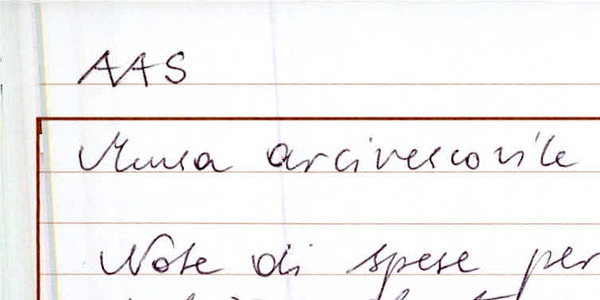 AAS
Mensa arcivescovile
Note di spese per